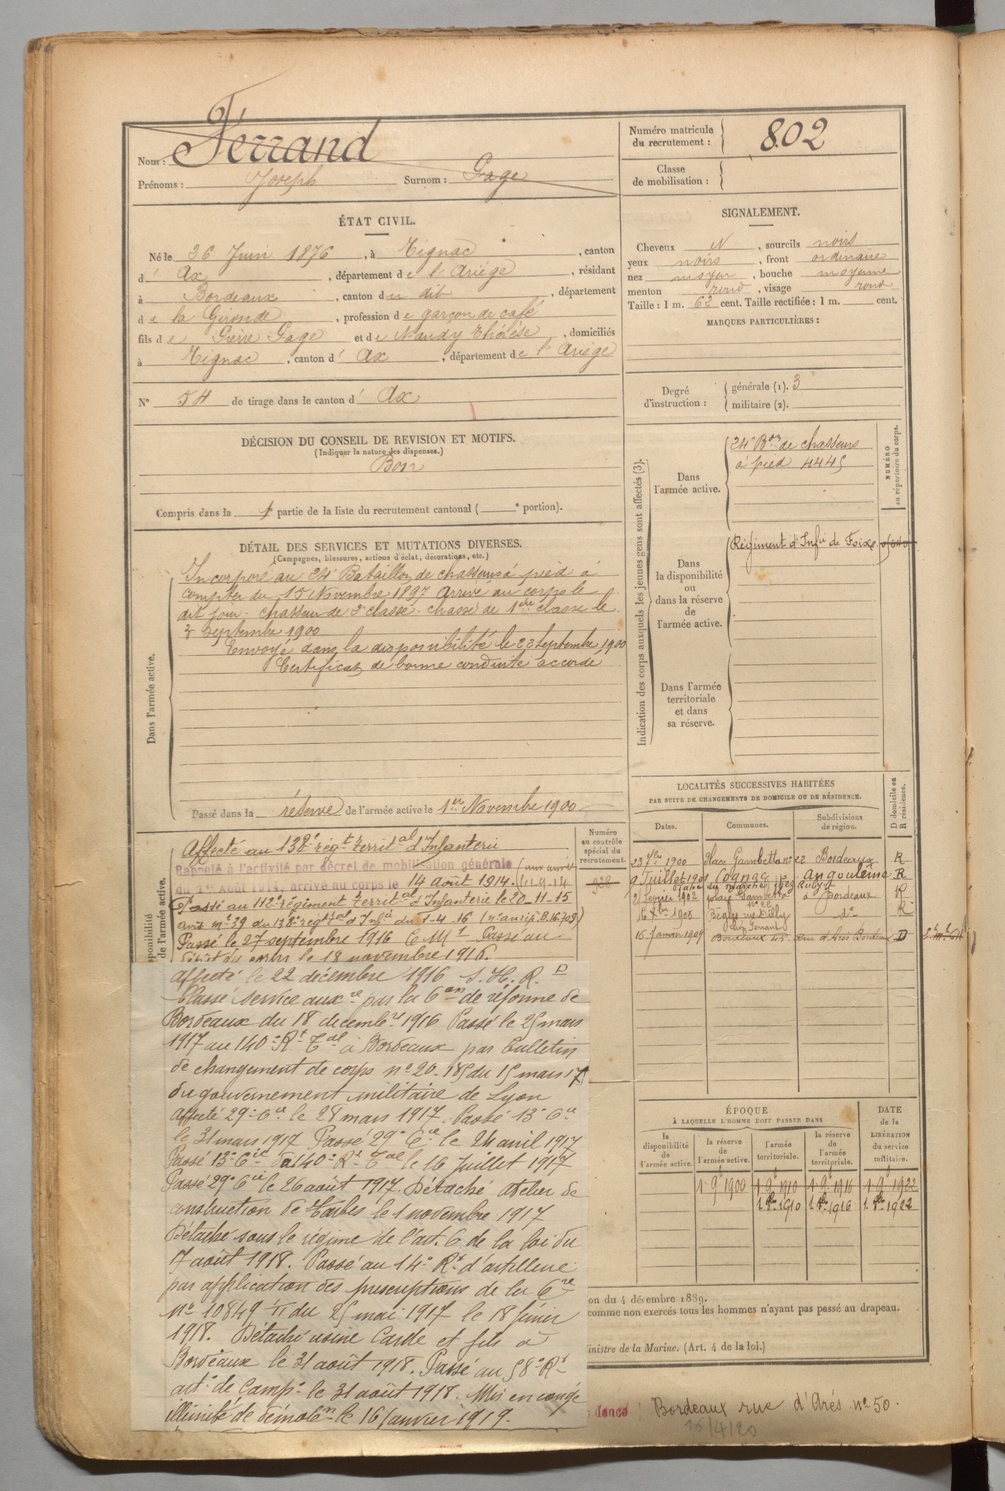 Nom : Ferrand
Prénoms : Joseph Surnom : Gage
Numéro matricule du recrutement : 802
Classe de mobilisation :
ÉTAT CIVIL.
Né le 26 Juin 1876, à Tignac, canton
d' Ax, département de l'Ariège, résidant
à Bordeaux, canton du dit, département
de la Gironde, profession de garçon de café
fils de Pierre Gage et de Naudy Thérèse, domiciliés
à Tignac, canton d' Ax, département de l'Ariège
N° 54 de tirage dans le canton d' Ax
DÉCISION DU CONSEIL DE REVISION ET MOTIFS.
(Indiquer la nature des dispenses.)
Bon
Compris dans la 1 partie de la liste du recrutement cantonal ( e portion).
SIGNALEMENT.
Cheveux N, sourcils noirs
yeux noirs, front ordinaire
nez moyen, bouche moyenne
menton rond, visage rond
Taille : 1 m. 62 cent. Taille rectifiée : 1 m. cent.
MARQUES PARTICULIÈRES :
Degré d'instruction : générale (1). 3
militaire (2).
DÉTAIL DES SERVICES ET MUTATIONS DIVERSES.
(Campagnes, blessures, actions d'éclat, décorations, etc.)
Dans l'armée active.
Incorporé au 24e Bataillon de chasseurs à pied à
compter du 15 Novembre 1897 arrivé au corps le
dit jour. chasseur de 2e classe. chasse de 1ère classe le
Septembre 1900
Envoyé dans la disponibilité le 22 Septembre 1900
Certificat de bonne conduite accordé
Passé dans la réserve de l'armée active le 1er Novembre 1900
Indication des corps auxquels les jeunes gens sont affectés (3).
NUMÉRO au répertoire du corps.
Dans l'armée active.
24e Bon de chasseurs
à pied 4445
Dans la disponibilité ou dans la réserve de l'armée active.
Régiment d'Infie de Foix
Dans l'armée territoriale et dans sa réserve.
LOCALITÉS SUCCESSIVES HABITÉES
PAR SUITE DE CHANGEMENTS DE DOMICILE OU DE RÉSIDENCE.
Dates. Communes. Subdivisions de région. D domicile ou R résidence.
23 7bre 1900 place Gambetta n° 22 Bordeaux R
9 Juillet 1901 Cognac Angoulème R
21 février 1902 place Gambetta à Bordeaux R
1908 Bègles R
15 Janvier 1909 Bordeaux 45 Rue d'Arès Bordeaux D
Numéro au contrôle spécial du recrutement.
938
Affecté au 138e régt territal d'Infanterie
Rappelé à l'activité par décret de mobilisation générale
du 1er Août 1914, arrivé au corps le 14 août 1914.
Passé au 112e régiment territal d'Infanterie le 20-11-15
Passé le 27 septembre 1916
Dépôt du corps le 18 novembre 1916.
Affecté le 22 décembre 1916 S. H. R.
Classé service auxre par la 6e on de réforme de
Bordeaux du 18 decembre 1916 Passé le 25 mars
1917 au 140e Rt Tal à Bordeaux par bulletin
de changement de corps n° 20-185 du 15 mars 17
du gouvernement militaire de Lyon
affecté 29e Cie le 28 mars 1917. Passé 13e Cie
le 31 mars 1917 Passé 29e Cie le 24 avril 1917
Passé 13e Cie du 140e Rt Tal le 16 Juillet 1917
Passé 29e Cie le 26 août 1917. Détaché atelier de
construction de Tarbes le 1 novembre 1917
Détaché sous le régime de l'art. 6 de la loi du
17 août 1918. Passé au 14e Rt d'artillerie
par application des prescriptions de la Cre
N° 10849 du 25 mai 1917 le 18 février
1918. Détaché usine Carde et fils à
Bordeaux le 31 août 1918. Passé au 58e Rt
artie de Campe le 31 août 1918. Mis en congé
illimité de démobon le 16 Janvier 1919.
ÉPOQUE
À LAQUELLE L'HOMME DOIT PASSER DANS
DATE de la LIBÉRATION du service militaire.
la disponibilité de l'armée active. la réserve de l'armée active. l'armée territoriale. la réserve de l'armée territoriale.
1 9e 1900 1 9e 1910 1 9e 1916 1 9e 1922
1 8bre 1910 1 8bre 1916 1 8bre 1922
on du 4 décembre 1889.
comme non exercés tous les hommes n'ayant pas passé au drapeau.
inistre de la Marine. (Art. 4 de la loi.)
Bordeaux rue d'Arès n° 50.
15/4/20